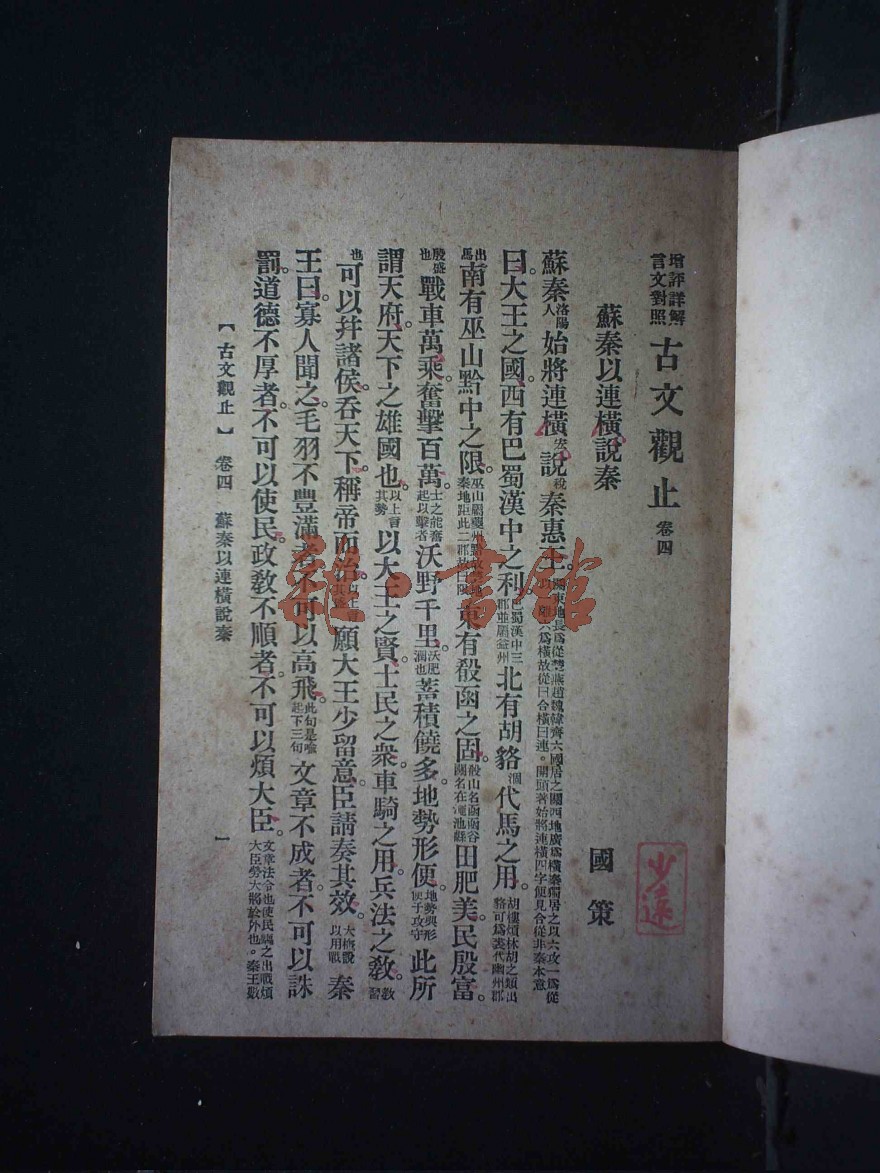 增評詳解
言文對照
古文觀止 卷四
蘇秦以連橫說秦 國策
蘇秦洛陽人始將連橫說稅秦惠王。
關東地長為從楚燕趙魏韓齊六國居之關西地廣為橫秦獨居之以六攻一為從
為橫故從曰合橫曰連。開頭著始將連橫四字便見合從非秦本意
曰。大王之國。西有巴蜀漢中之利。巴蜀漢中三郡並屬益州北有胡貉涸代馬之用。胡樓煩林胡之類出貉可為裘代幽州郡
出馬南有巫山黔中之限。東有殽函之固。殽山名函函谷關名在澠池縣田肥美。民殷富。
殷盛也戰車萬乘。奮擊百萬。士之能奮起以擊者沃野千里。沃肥潤也蓄積饒多。地勢形便。地勢與形便于攻守此所
謂天府。天下之雄國也。以上言其勢以大王之賢。士民之衆。車騎之用。兵法之教。教習
也可以幷諸侯。吞天下。稱帝而治。願大王少留意。臣請奏其效。大概說以用戰秦
王曰。寡人聞之。毛羽不豐滿者。不可以高飛。此句是喻起下三句文章不成者。不可以誅
罰。道德不厚者。不可以使民。政敎不順者。不可以煩大臣。文章法令也使民驅之出戰煩大臣勞大將於外也。秦王數
【古文觀止】 卷四 蘇秦以連橫說秦 一
少遠
龍口書館